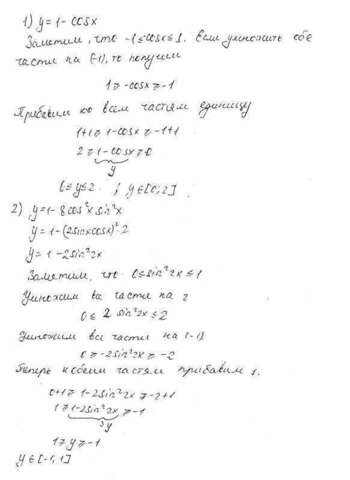 1) y = 1 - cosx
Заметим, что -1 ≤ cosx ≤ 1. Если умножить обе
части на (-1), то получим
1 ≥ -cosx ≥ -1
Прибавим ко всем частям единицу
1+1 ≥ 1-cosx ≥ -1+1
2 ≥ 1-cosx ≥ 0
y
0 ≤ y ≤ 2 ; y ∈ [0; 2]
2) y = 1 - 8cos²x sin²x
y = 1 - (2sinxcosx)²·2
y = 1 - 2sin²2x
Заметим, что 0 ≤ sin²2x ≤ 1
Умножим все части на 2
0 ≤ 2 sin²2x ≤ 2
Умножим все части на (-1)
0 ≥ -2sin²2x ≥ -2
Теперь к обеим частям прибавим 1.
0+1 ≥ 1-2sin²2x ≥ -2+1
1 ≥ 1-2sin²2x ≥ -1
y
1 ≥ y ≥ -1
y ∈ [-1; 1]